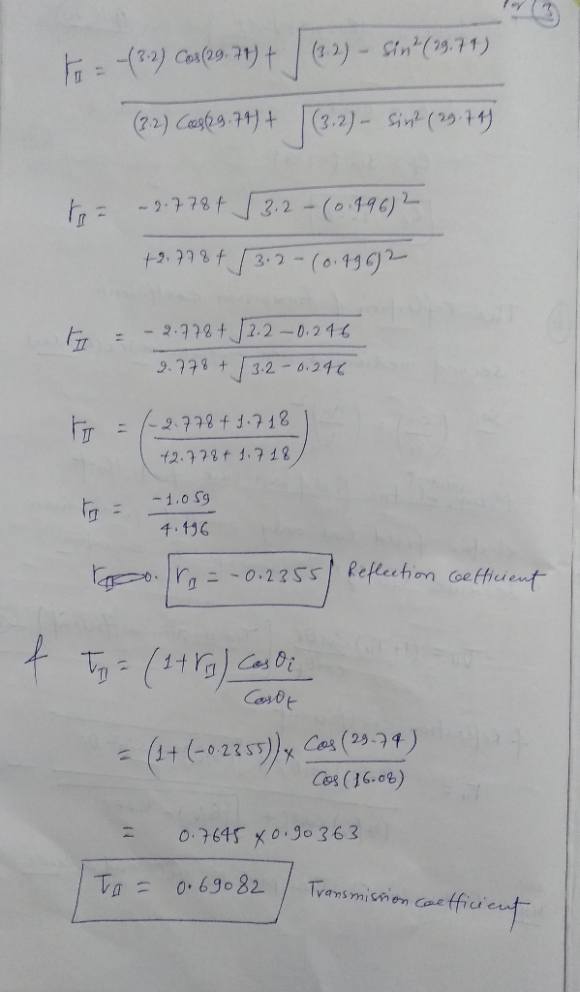 r_∥ = (-(3.2) Cos(29.74) + √((3.2) - Sin²(29.74))) / ((3.2) Cos(29.74) + √((3.2) - Sin²(29.74)))
r_∥ = (-2.778 + √(3.2 - (0.496)²)) / (+2.778 + √(3.2 - (0.496)²))
r_∥ = (-2.778 + √(3.2 - 0.246)) / (2.778 + √(3.2 - 0.246))
r_∥ = ((-2.778 + 1.718) / (+2.778 + 1.718))
r_∥ = -1.059 / 4.496
r_∥ = -0.2355 Reflection coefficient
f T_∥ = (1 + r_∥) Cosθi / Cosθt
= (1 + (-0.2355)) × Cos(29.74) / Cos(16.08)
= 0.7645 × 0.90363
T_∥ = 0.69082 Transmission coefficient